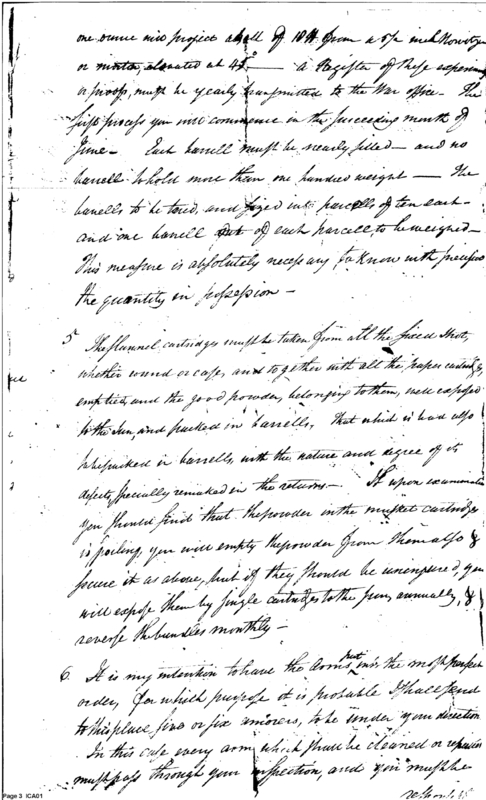 one ounce will project a ball of 18 lb from a 5½ inch Howitzer
or mortar, elevated at 45° — a Register of these experim
or proofs, must be yearly transmitted to the War office. The
first process you will commence in the succeeding month of
June — Each barrell must be nearly filled — and no
barrell to hold more than one hundred weight — The
barrells to be tared, and sized into parcells of ten each —
and one barrell out of each parcell to be weighed —
This measure is absolutely necessary to know with precision
the quantity in possession —
5 The flannel cartridges must be taken from all the fixed shot,
whether round or case, and together with all the paper cartridges,
emptied, and the good powder, belonging to them, well exposed
to the Sun, and packed in barrells, that which is bad also
to be packed in barrells, with the nature and degree of its
defects, specially remarked in the returns — If upon examination
you should find that the powder in the musket cartridges
is spoiling, you will empty the powder from them also &
secure it as above, but if they should be uninjured, you
will expose them by single cartridges to the sun, annually, &
reverse the bundles monthly —
6. It is my intention to have the arms put into the most perfect
order, for which purpose it is probable I shall send
to this place, five or six armorers, to be under your direction
In this case every arm which shall be cleaned or repaired
must pass through your inspection, and you must be
responsible
Page 3 ICA01